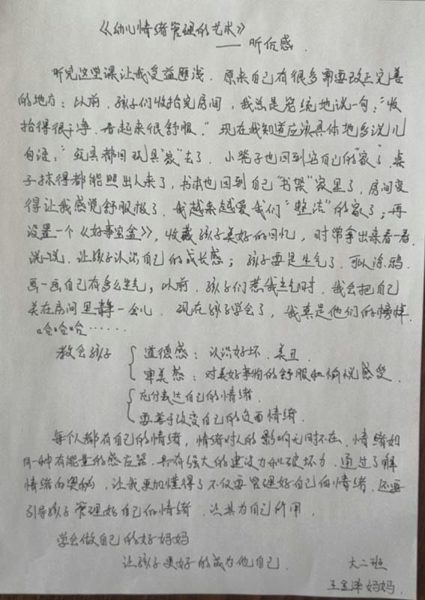 《幼儿情绪管理的艺术》
——听后感.
听完这堂课让我受益匪浅. 原来自己有很多需要改正完善
的地方: 以前, 孩子们收拾完房间, 我总是笼统地说一句: "收
拾得很干净. 看起来很舒服." 现在我知道应该具体地多说几
句话, "玩具都回玩具"家"去了. 小凳子也回到它自己的"家"了. 桌
子抹得都能照出人来了, 书本也回到自己"书架"家里了. 房间变
得让我感觉舒服极了. 我越来越爱我们"整洁"的家了; 再
设置一个《好事宝盒》, 收藏孩子美好的回忆, 时常拿出来看一看.
说一说. 让孩子认识自己的成长感; 孩子要是生气了. 可以涂鸦.
画一画自己有多么生气; 以前. 孩子们惹我生气时. 我会把自己
关在房间里静一会儿. 现在孩子学会了, 我真是他们的榜样.
哈哈哈……
教会孩子
道德感: 认识好坏. 美丑
审美感: 对美好事物的舒服和愉悦感受.
充分表达自己的情绪.
要善于改变自己的负面情绪.
每个人都有自己的情绪, 情绪对人的影响无时不在. 情绪如
同一种有能量的感应器. 具有强大的建设力和破坏力. 通过了解
情绪的奥妙, 让我更加懂得了不仅要管理好自己的情绪. 还要
引导孩子管理好自己的情绪. 让其为自己所用.
学会做自己的好妈妈
让孩子更好的成为他自己.
大二班
妈妈.